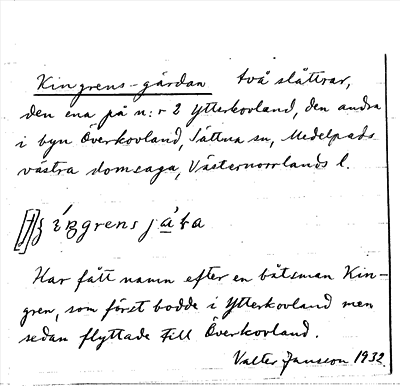 Kingrens-gärdan två slåttrar,
den ena på n:r 2 Ytterkovland, den andra
i byn Överkovland, Sättna sn, Medelpads
västra domsaga, Västernorrlands l.
Har fått namn efter en båtsman Kin-
gren, som först bodde i Ytterkovland men
sedan flyttade till Överkovland.
Valter Jansson 1932.